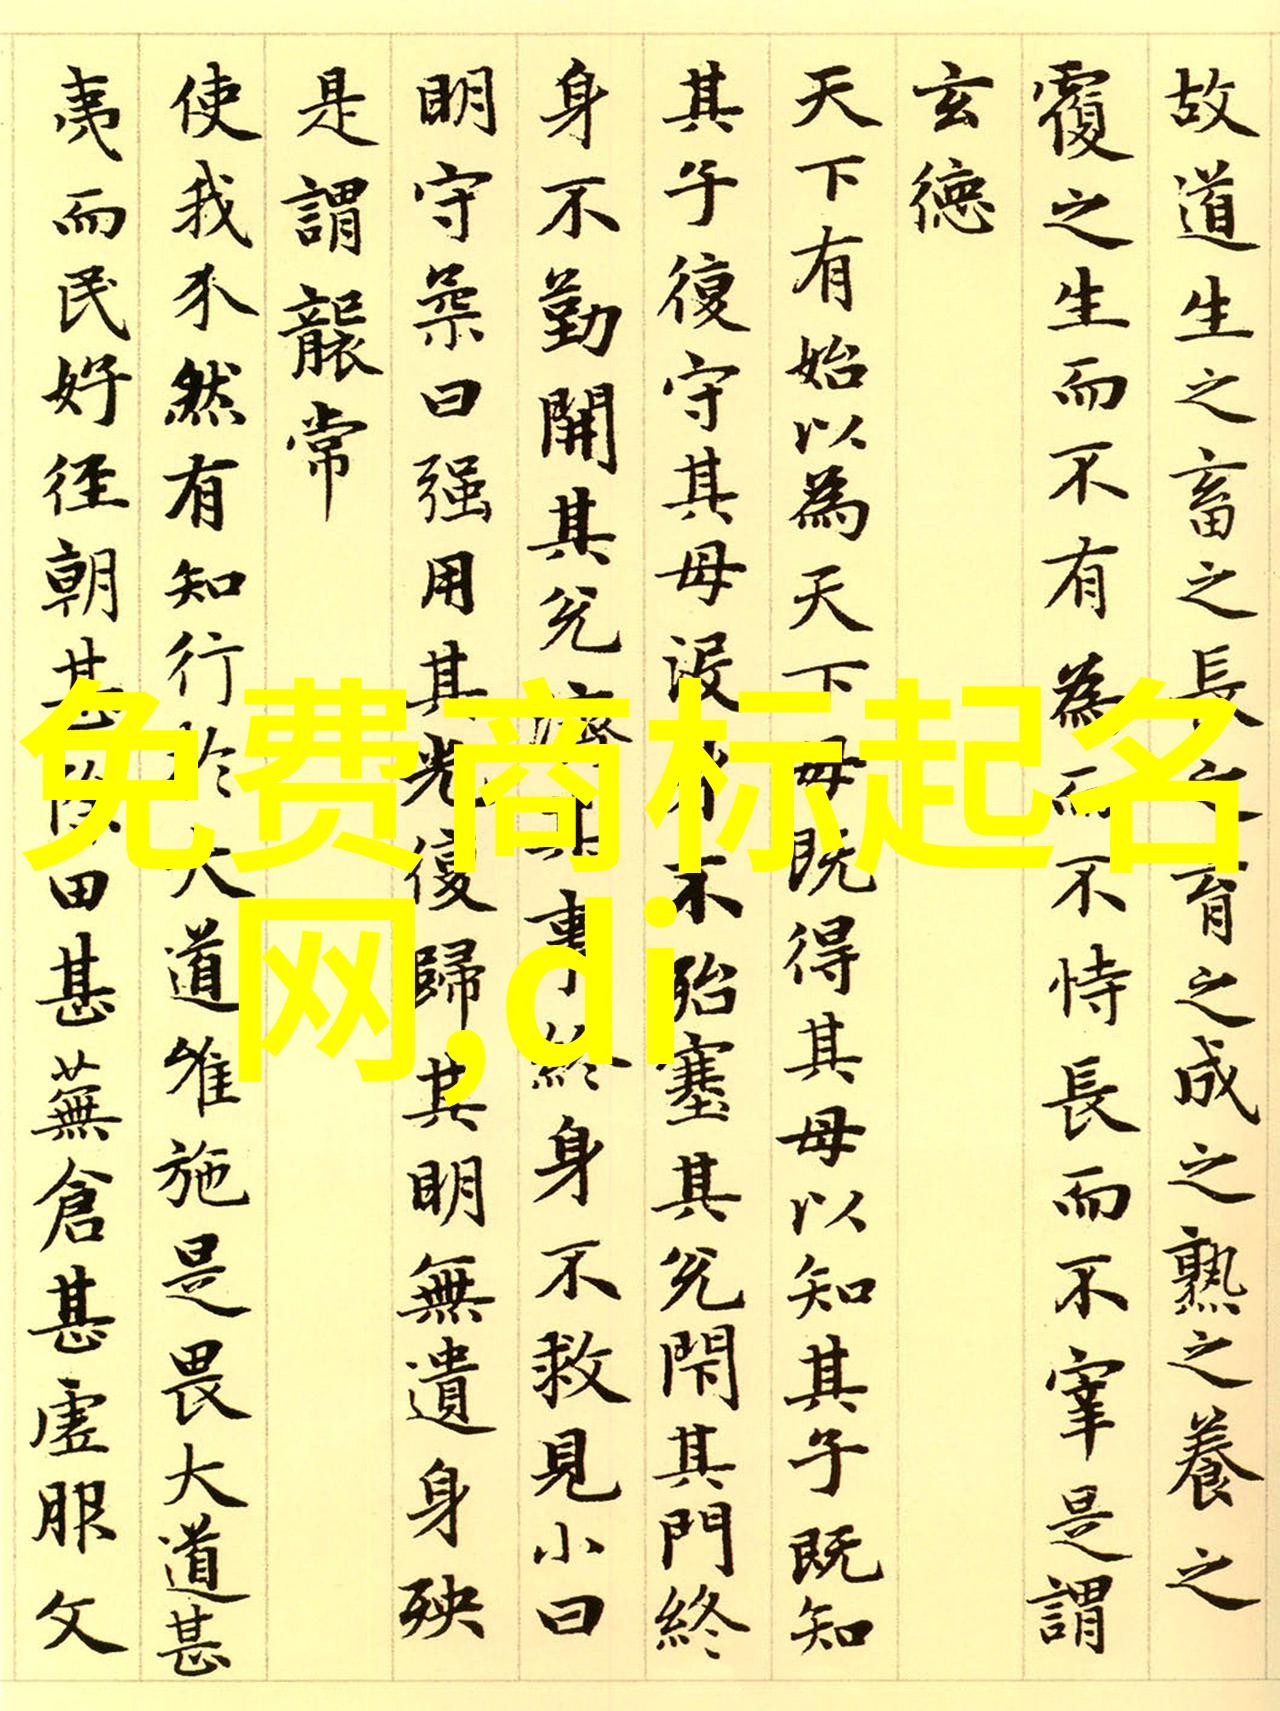 故道生之畜之長之育之成之熟之養之
覆之生而不有為而不恃長而不宰是謂
玄德
天下有始以為天下母既得其母以知其子既知
其子復守其母没身不殆塞其兑閇其門終
身不勤開其兑濟其事終身不救見小曰
明守柔曰强用其光復歸其明無遺身殃
是謂襲常
使我介然有知行於大道唯施是畏大道甚
夷而民好徑朝甚除田甚蕪倉甚虛服文
免费商标起名
网,di